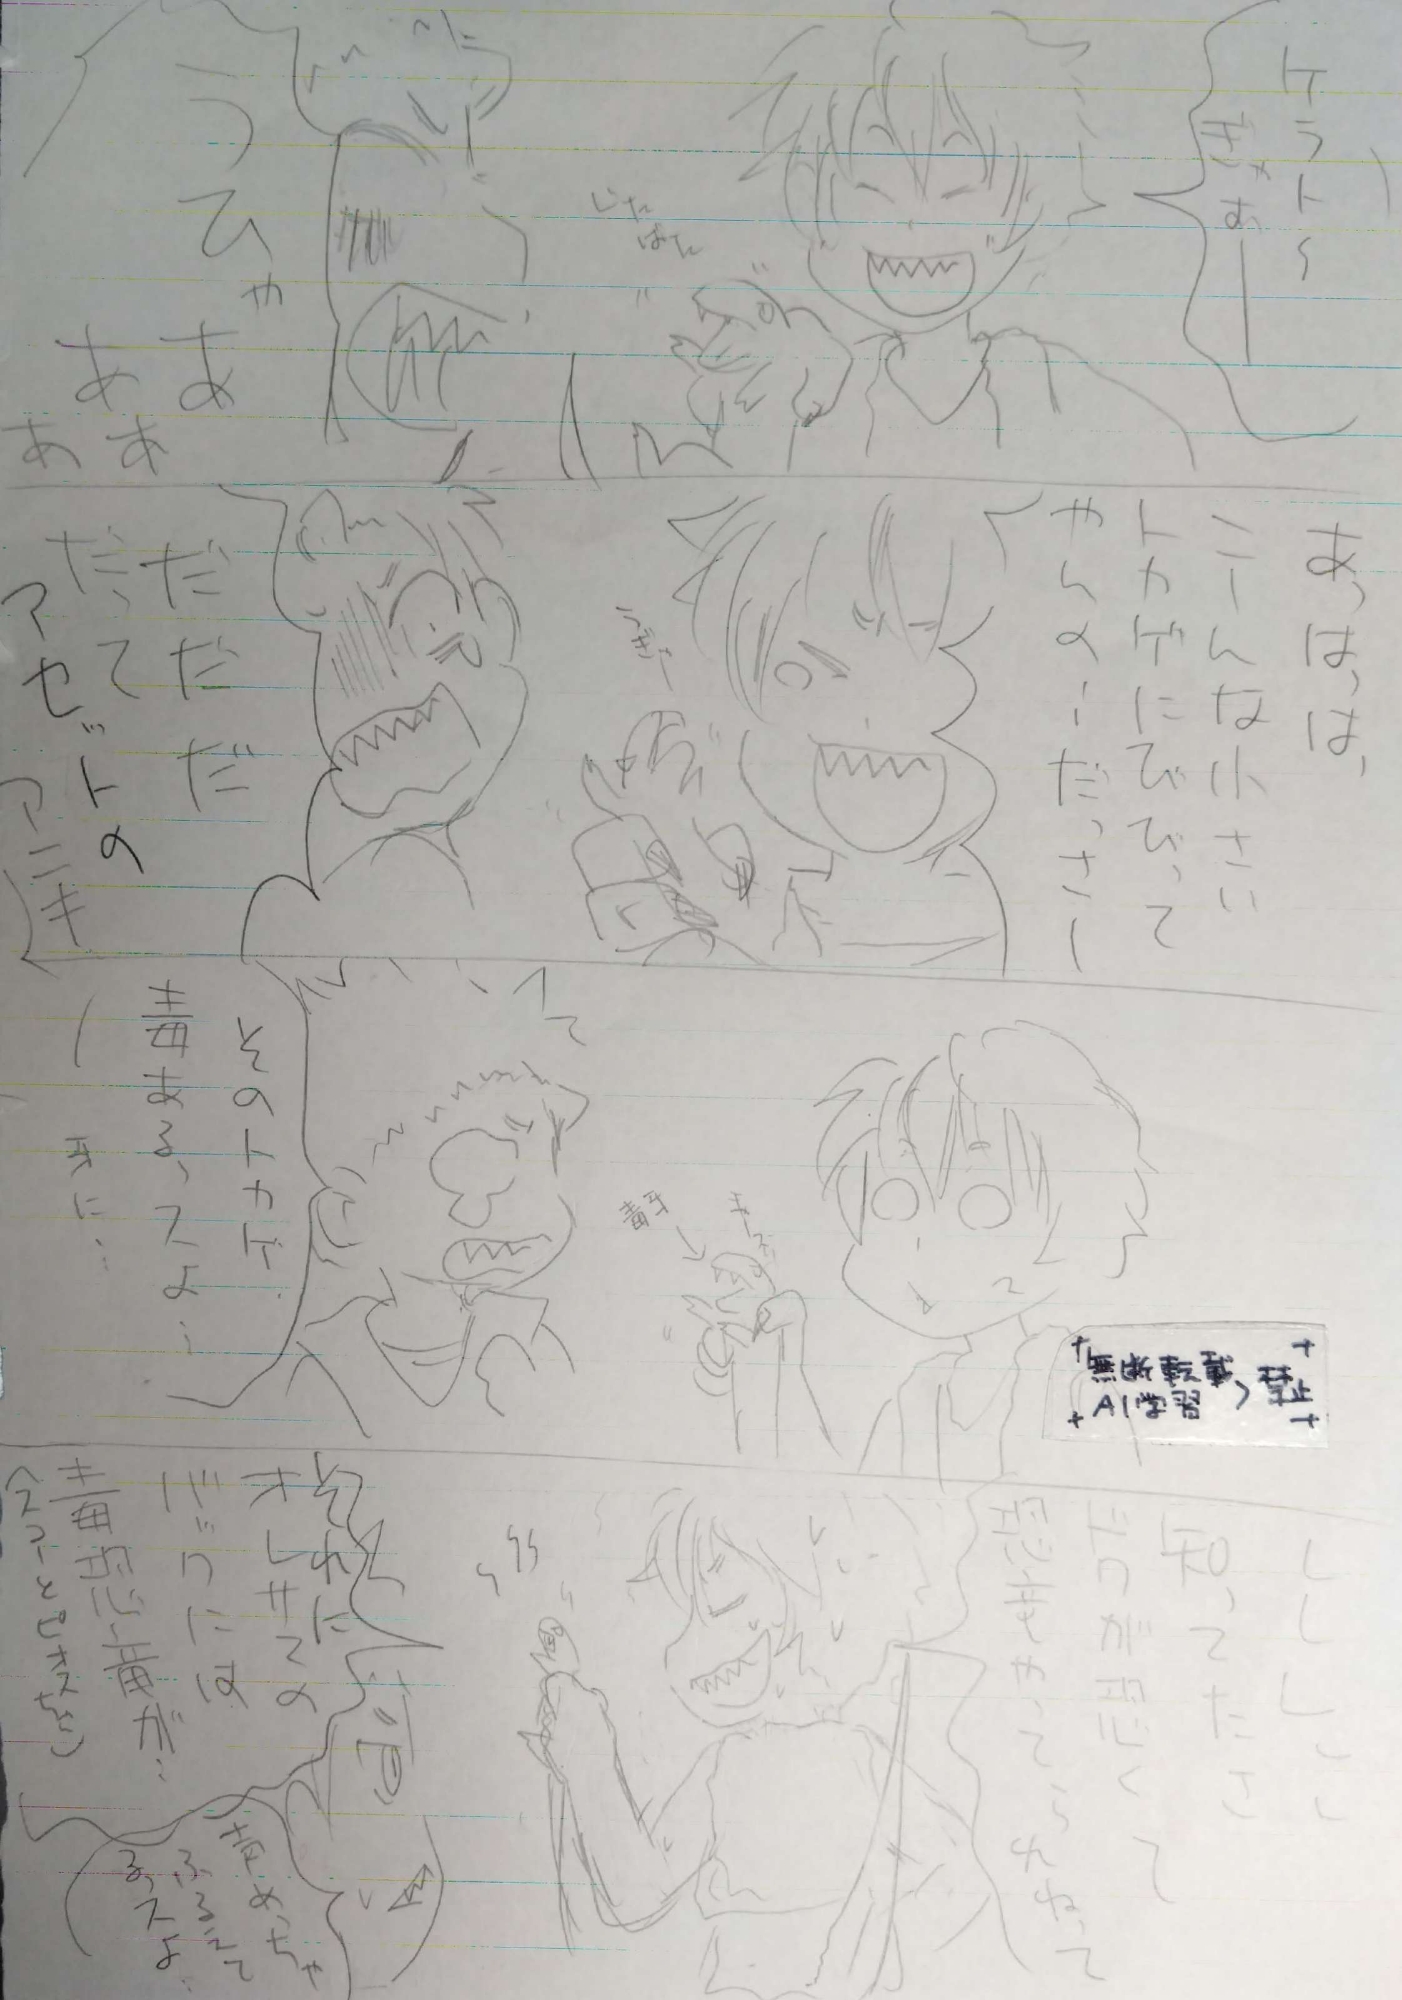 ケラト〜
ぎゃおー
じたばた
うひゃ
あああぁ
あっはっは、
こーんな小さい
トカゲにびびって
やんのーだっさー
うぎー
だだだ
だって
アゼットの
アニキ
そのトカゲ
毒あるっスよ…
牙に…
毒牙
無断転載、
AI学習 禁止
しししし
知ってたさ
だつが恐くて
悪きやってられねって
それに
オレサマの
バックには
毒恐竜が…
(スコーピオスちゃん)
手めっちゃ
ふるえて
るっスよ